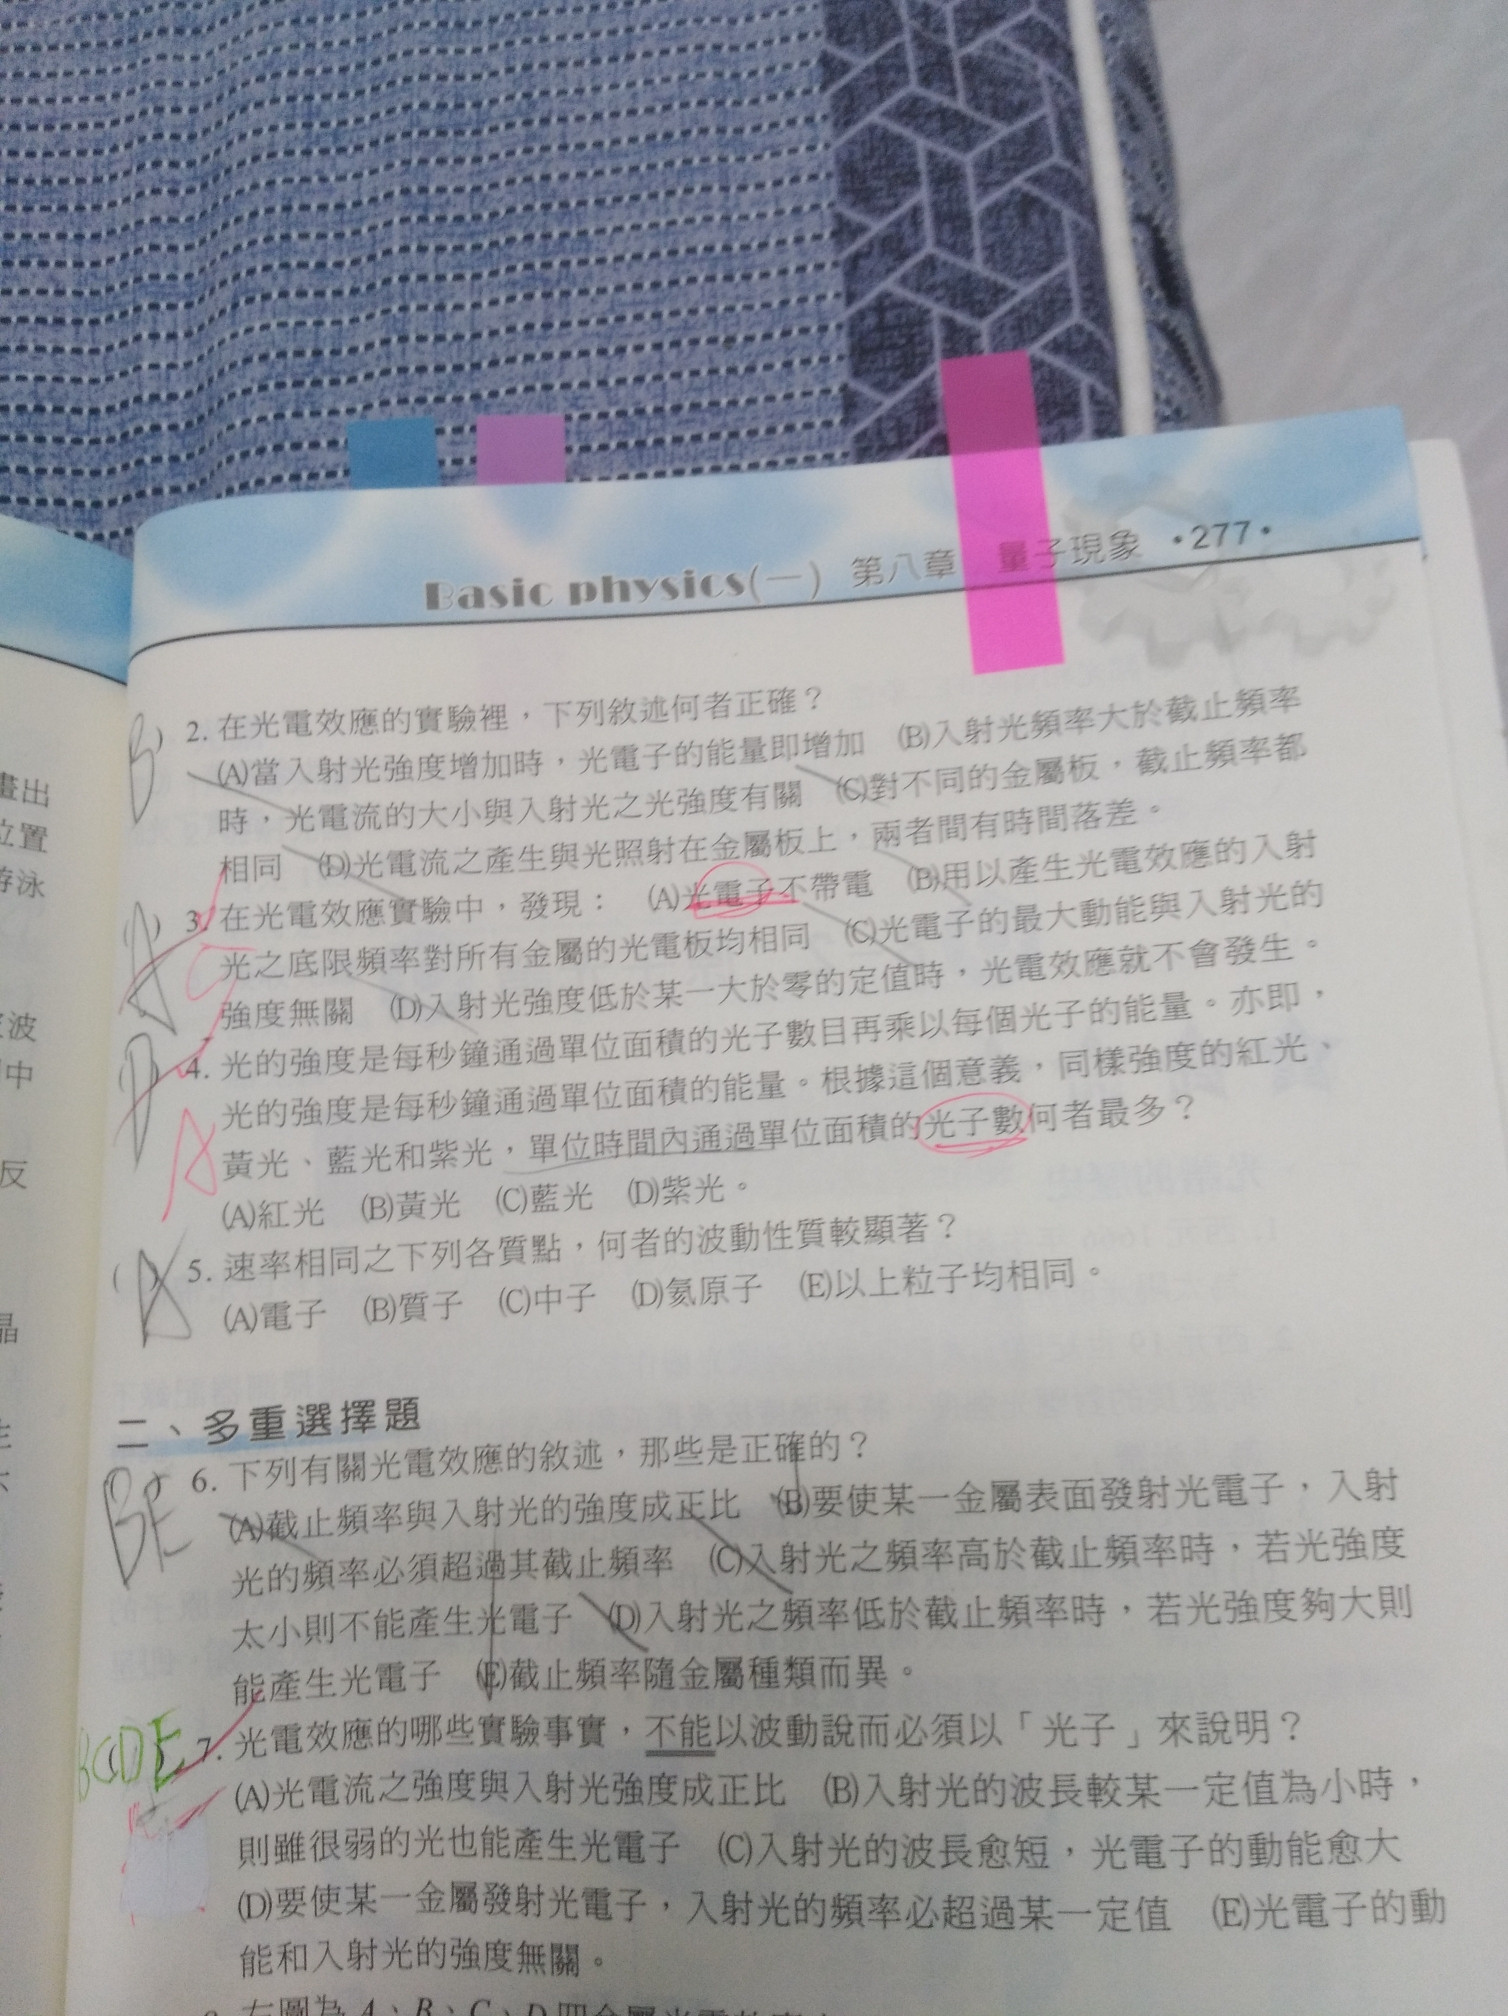 Basic physics(一) 第八章 量子現象 •277•
B ) 2. 在光電效應的實驗裡，下列敘述何者正確？
(A)當入射光強度增加時，光電子的能量即增加 (B)入射光頻率大於截止頻率
時，光電流的大小與入射光之光強度有關 (C)對不同的金屬板，截止頻率都
相同 (D)光電流之產生與光照射在金屬板上，兩者間有時間落差。
(A) 3. 在光電效應實驗中，發現： (A)光電子不帶電 (B)用以產生光電效應的入射
C
光之底限頻率對所有金屬的光電板均相同 (C)光電子的最大動能與入射光的
強度無關 (D)入射光強度低於某一大於零的定值時，光電效應就不會發生。
(D) 4. 光的強度是每秒鐘通過單位面積的光子數目再乘以每個光子的能量。亦即，
A
光的強度是每秒鐘通過單位面積的能量。根據這個意義，同樣強度的紅光、
黃光、藍光和紫光，單位時間內通過單位面積的光子數何者最多？
(A)紅光 (B)黃光 (C)藍光 (D)紫光。
(A) 5. 速率相同之下列各質點，何者的波動性質較顯著？
(A)電子 (B)質子 (C)中子 (D)氦原子 (E)以上粒子均相同。
二、多重選擇題
(BE) 6. 下列有關光電效應的敘述，那些是正確的？
(A)截止頻率與入射光的強度成正比 (B)要使某一金屬表面發射光電子，入射
光的頻率必須超過其截止頻率 (C)入射光之頻率高於截止頻率時，若光強度
太小則不能產生光電子 (D)入射光之頻率低於截止頻率時，若光強度夠大則
能產生光電子 (E)截止頻率隨金屬種類而異。
BCDE 7. 光電效應的哪些實驗事實，不能以波動說而必須以「光子」來說明？
(A)光電流之強度與入射光強度成正比 (B)入射光的波長較某一定值為小時，
則雖很弱的光也能產生光電子 (C)入射光的波長愈短，光電子的動能愈大
(D)要使某一金屬發射光電子，入射光的頻率必超過某一定值 (E)光電子的動
能和入射光的強度無關。
右圖為 A、B、C、D 四金屬光電效應
畫出
位置
游泳
波
中
反
晶